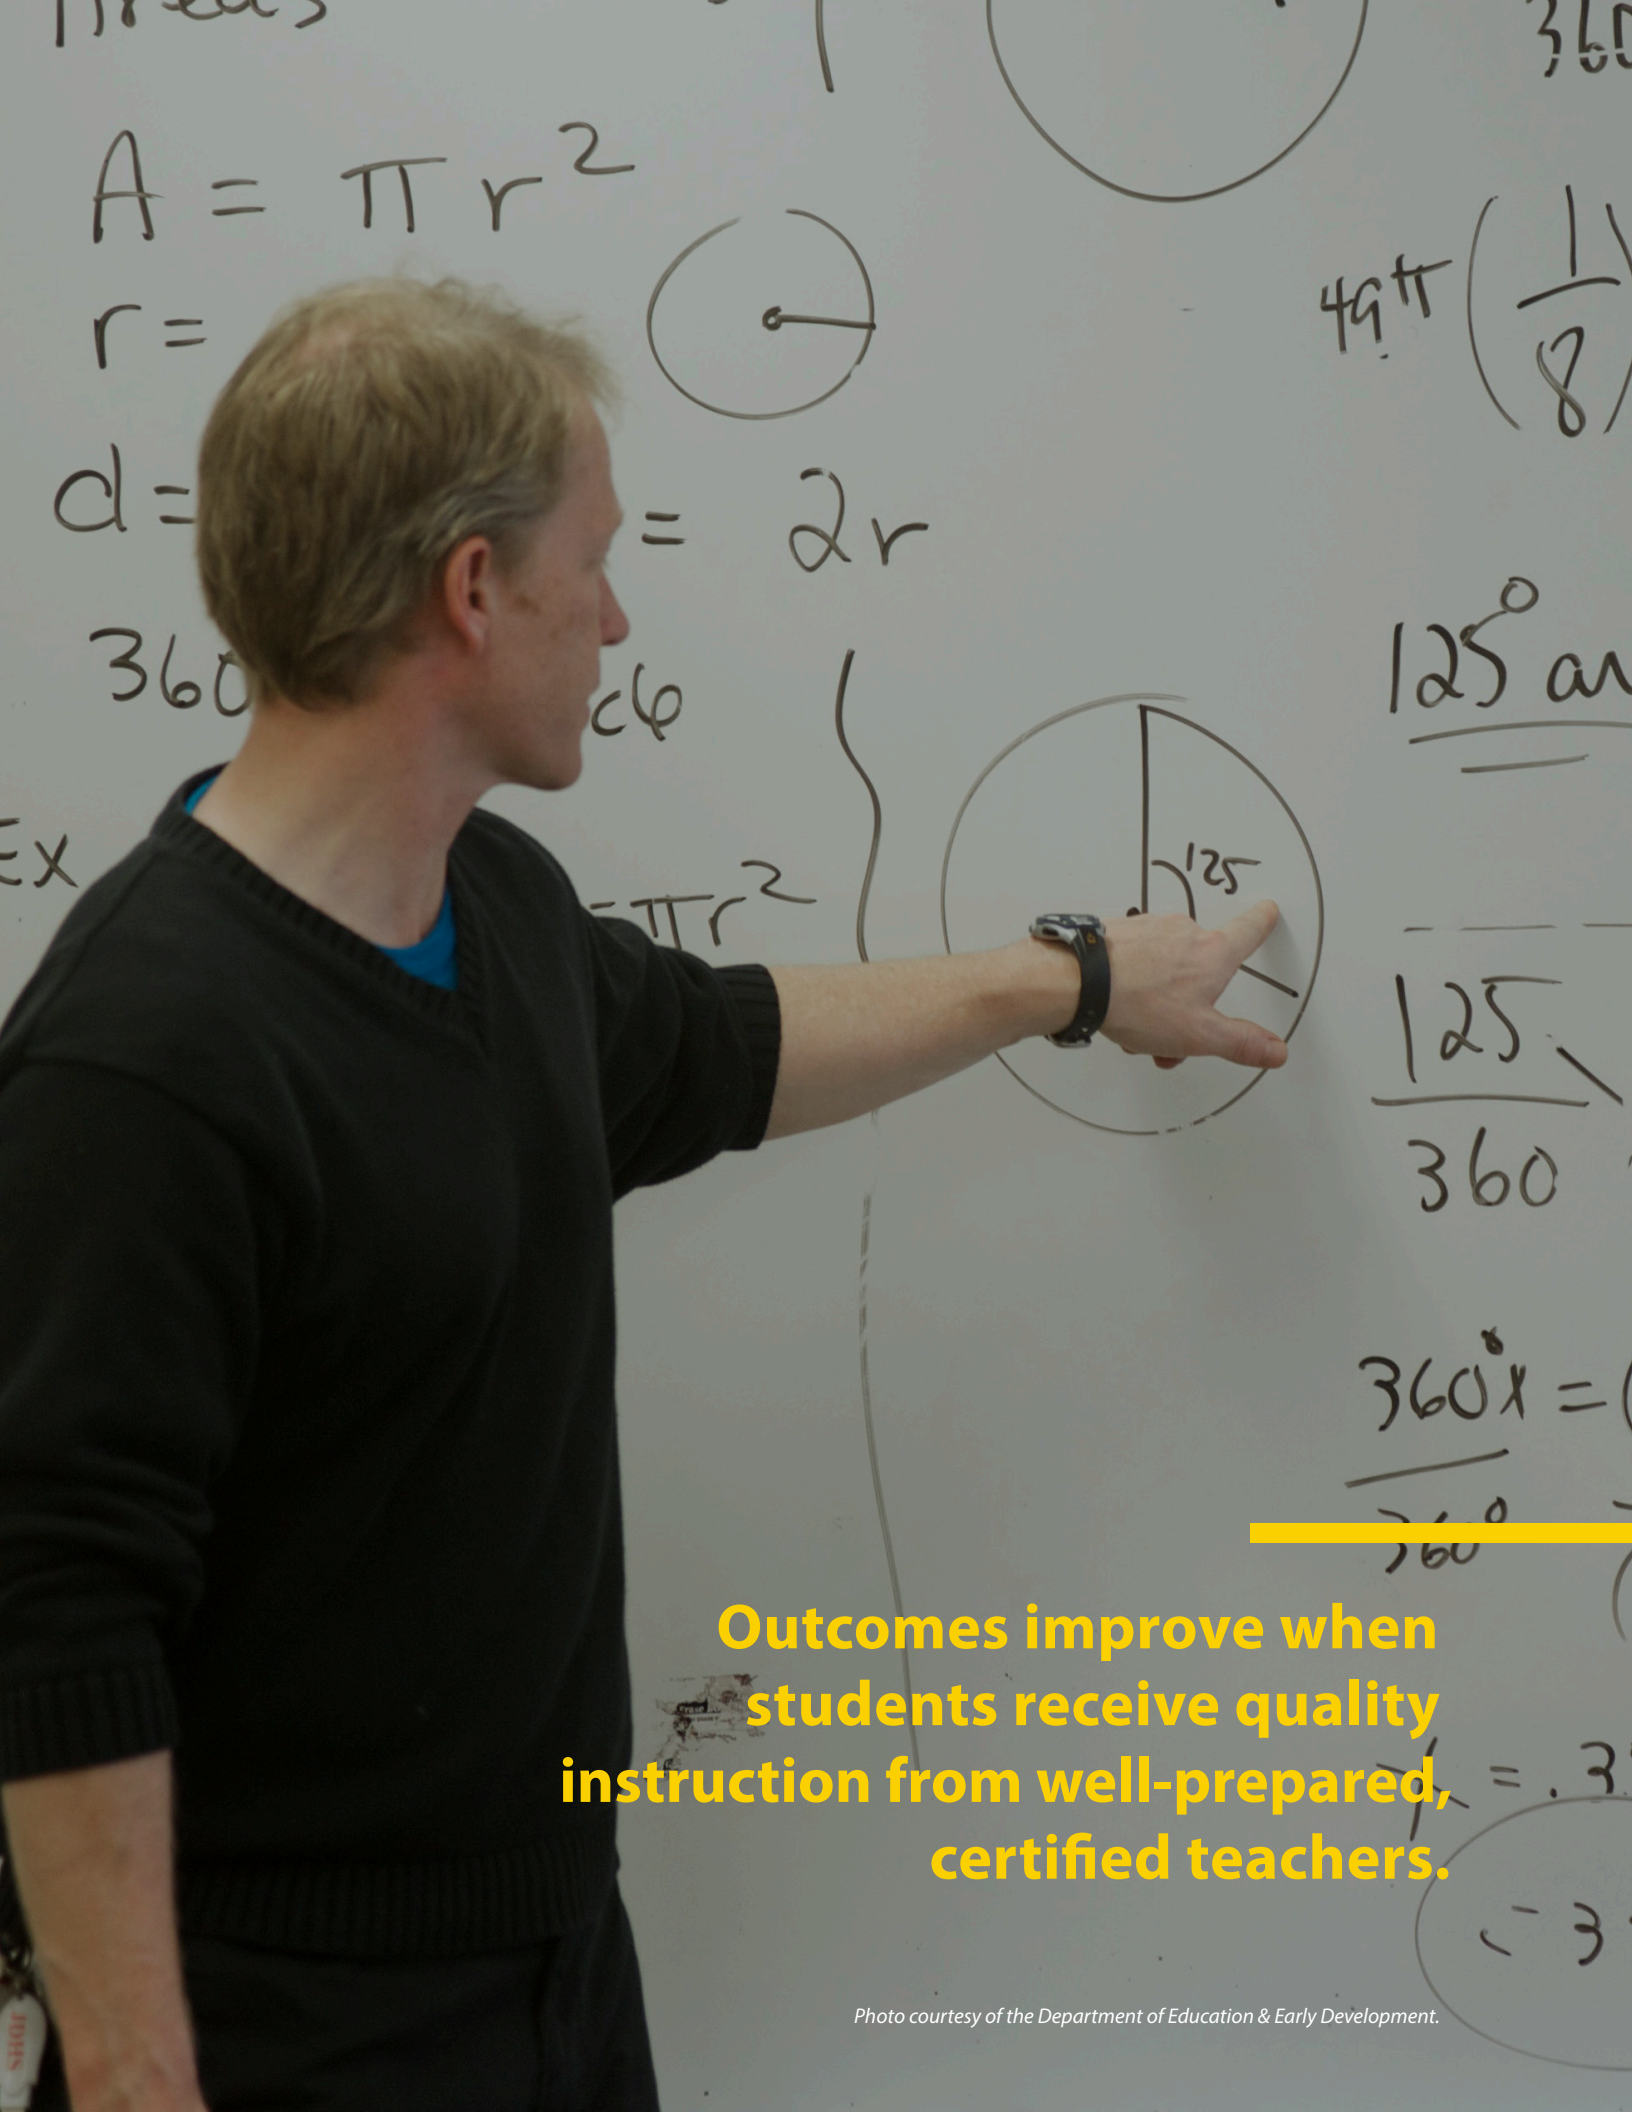 360
A = π r²
49π (1/8)
r =
d = = 2r
125° ar
360 c6
125
Ex
πr²
125
360
360°x =
360°
Outcomes improve when
students receive quality
instruction from well-prepared,
certified teachers.
x = .3
= 3
Photo courtesy of the Department of Education & Early Development.
JDHS